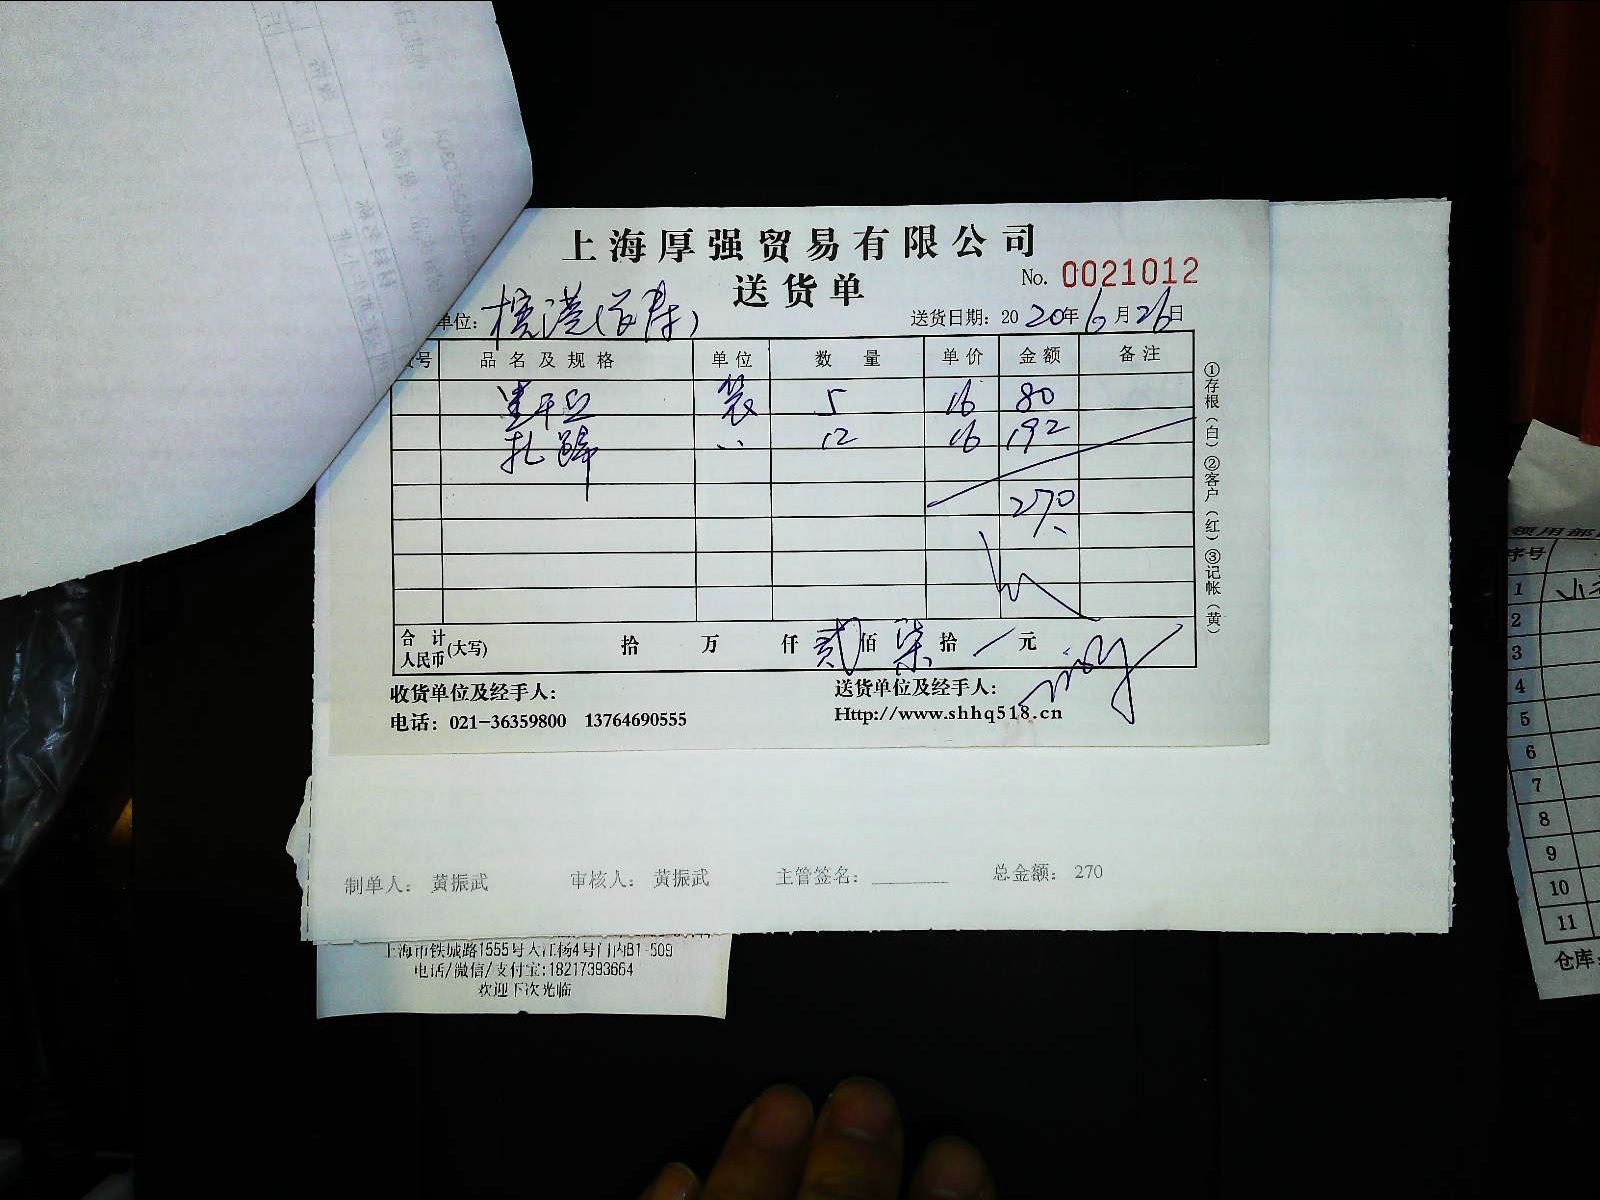 上海厚强贸易有限公司
送货单
No. 0021012
单位:
送货日期: 2020年6月26日
号 品名及规格 单位 数量 单价 金额 备注
袋 5 16 80
扎蹄 〃 12 16 192
270
合计人民币(大写) 拾 万 仟 贰佰 柒拾 元
收货单位及经手人:
送货单位及经手人:
电话: 021-36359800 13764690555
Http://www.shhq518.cn
①存根(白) ②客户(红) ③记帐(黄)
制单人: 黄振武 审核人: 黄振武 主管签名: 总金额: 270
上海市铁城路1555号入江杨4号门内B1-509
电话/微信/支付宝:18217393664
欢迎下次光临
领用部
序号
1
2
3
4
5
6
7
8
9
10
11
仓库: